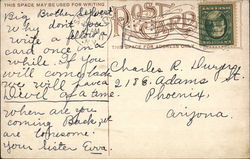 THIS SPACE MAY BE USED FOR WRITING
POST CARD
THIS SPACE FOR ADDRESS ONLY.
Big Brother
Why don't you
write a fellow a
card once in a
while. If you
will come
we will have a
Devel of a time.
When are you
coming Back, yet
are lonesome.
Your Sister Eva.
Charles R.
218 E. Adams St
Phoenix,
Arizona.